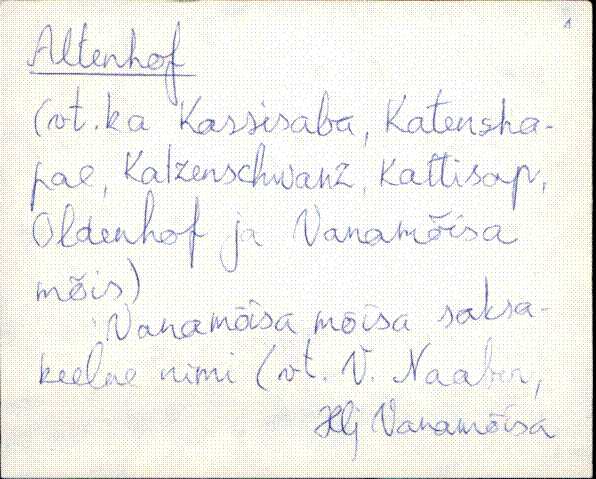 1
Altenhof
(vt. ka Kassisaba, Katensha-
pae, Katzenschwanz, Kattisap,
Oldenhof ja Vanamõisa
mõis)
Vanamõisa mõisa saksa-
keelne nimi (vt. V. Naaber,
Hlj Vanamõisa